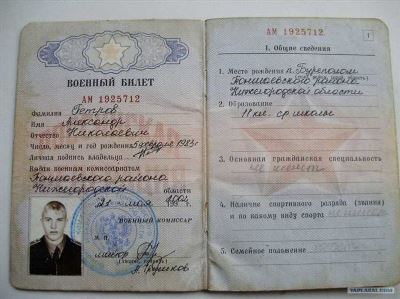 ВОЕННЫЙ БИЛЕТ
АМ 1925712
Фамилия Петров
Имя Александр
Отчество Николаевич
Число, месяц и год рождения 5 февраля 1983г
Личная подпись владельца
Выдан военным комиссариатом
Тоншаевского района
Нижегородской области
ВОЕННЫЙ КОМИССАР
М. П.
майор
АМ 1925712
1
I. Общие сведения
1. Место рождения п. Буреполом
Тоншаевского района
Нижегородской области
2. Образование
11 кл. ср школы
3. Основная гражданская специальность
не имеет
4. Наличие спортивного разряда (звания)
и по какому виду спорта не имеет
5. Семейное положение
YAPLAKAL.COM